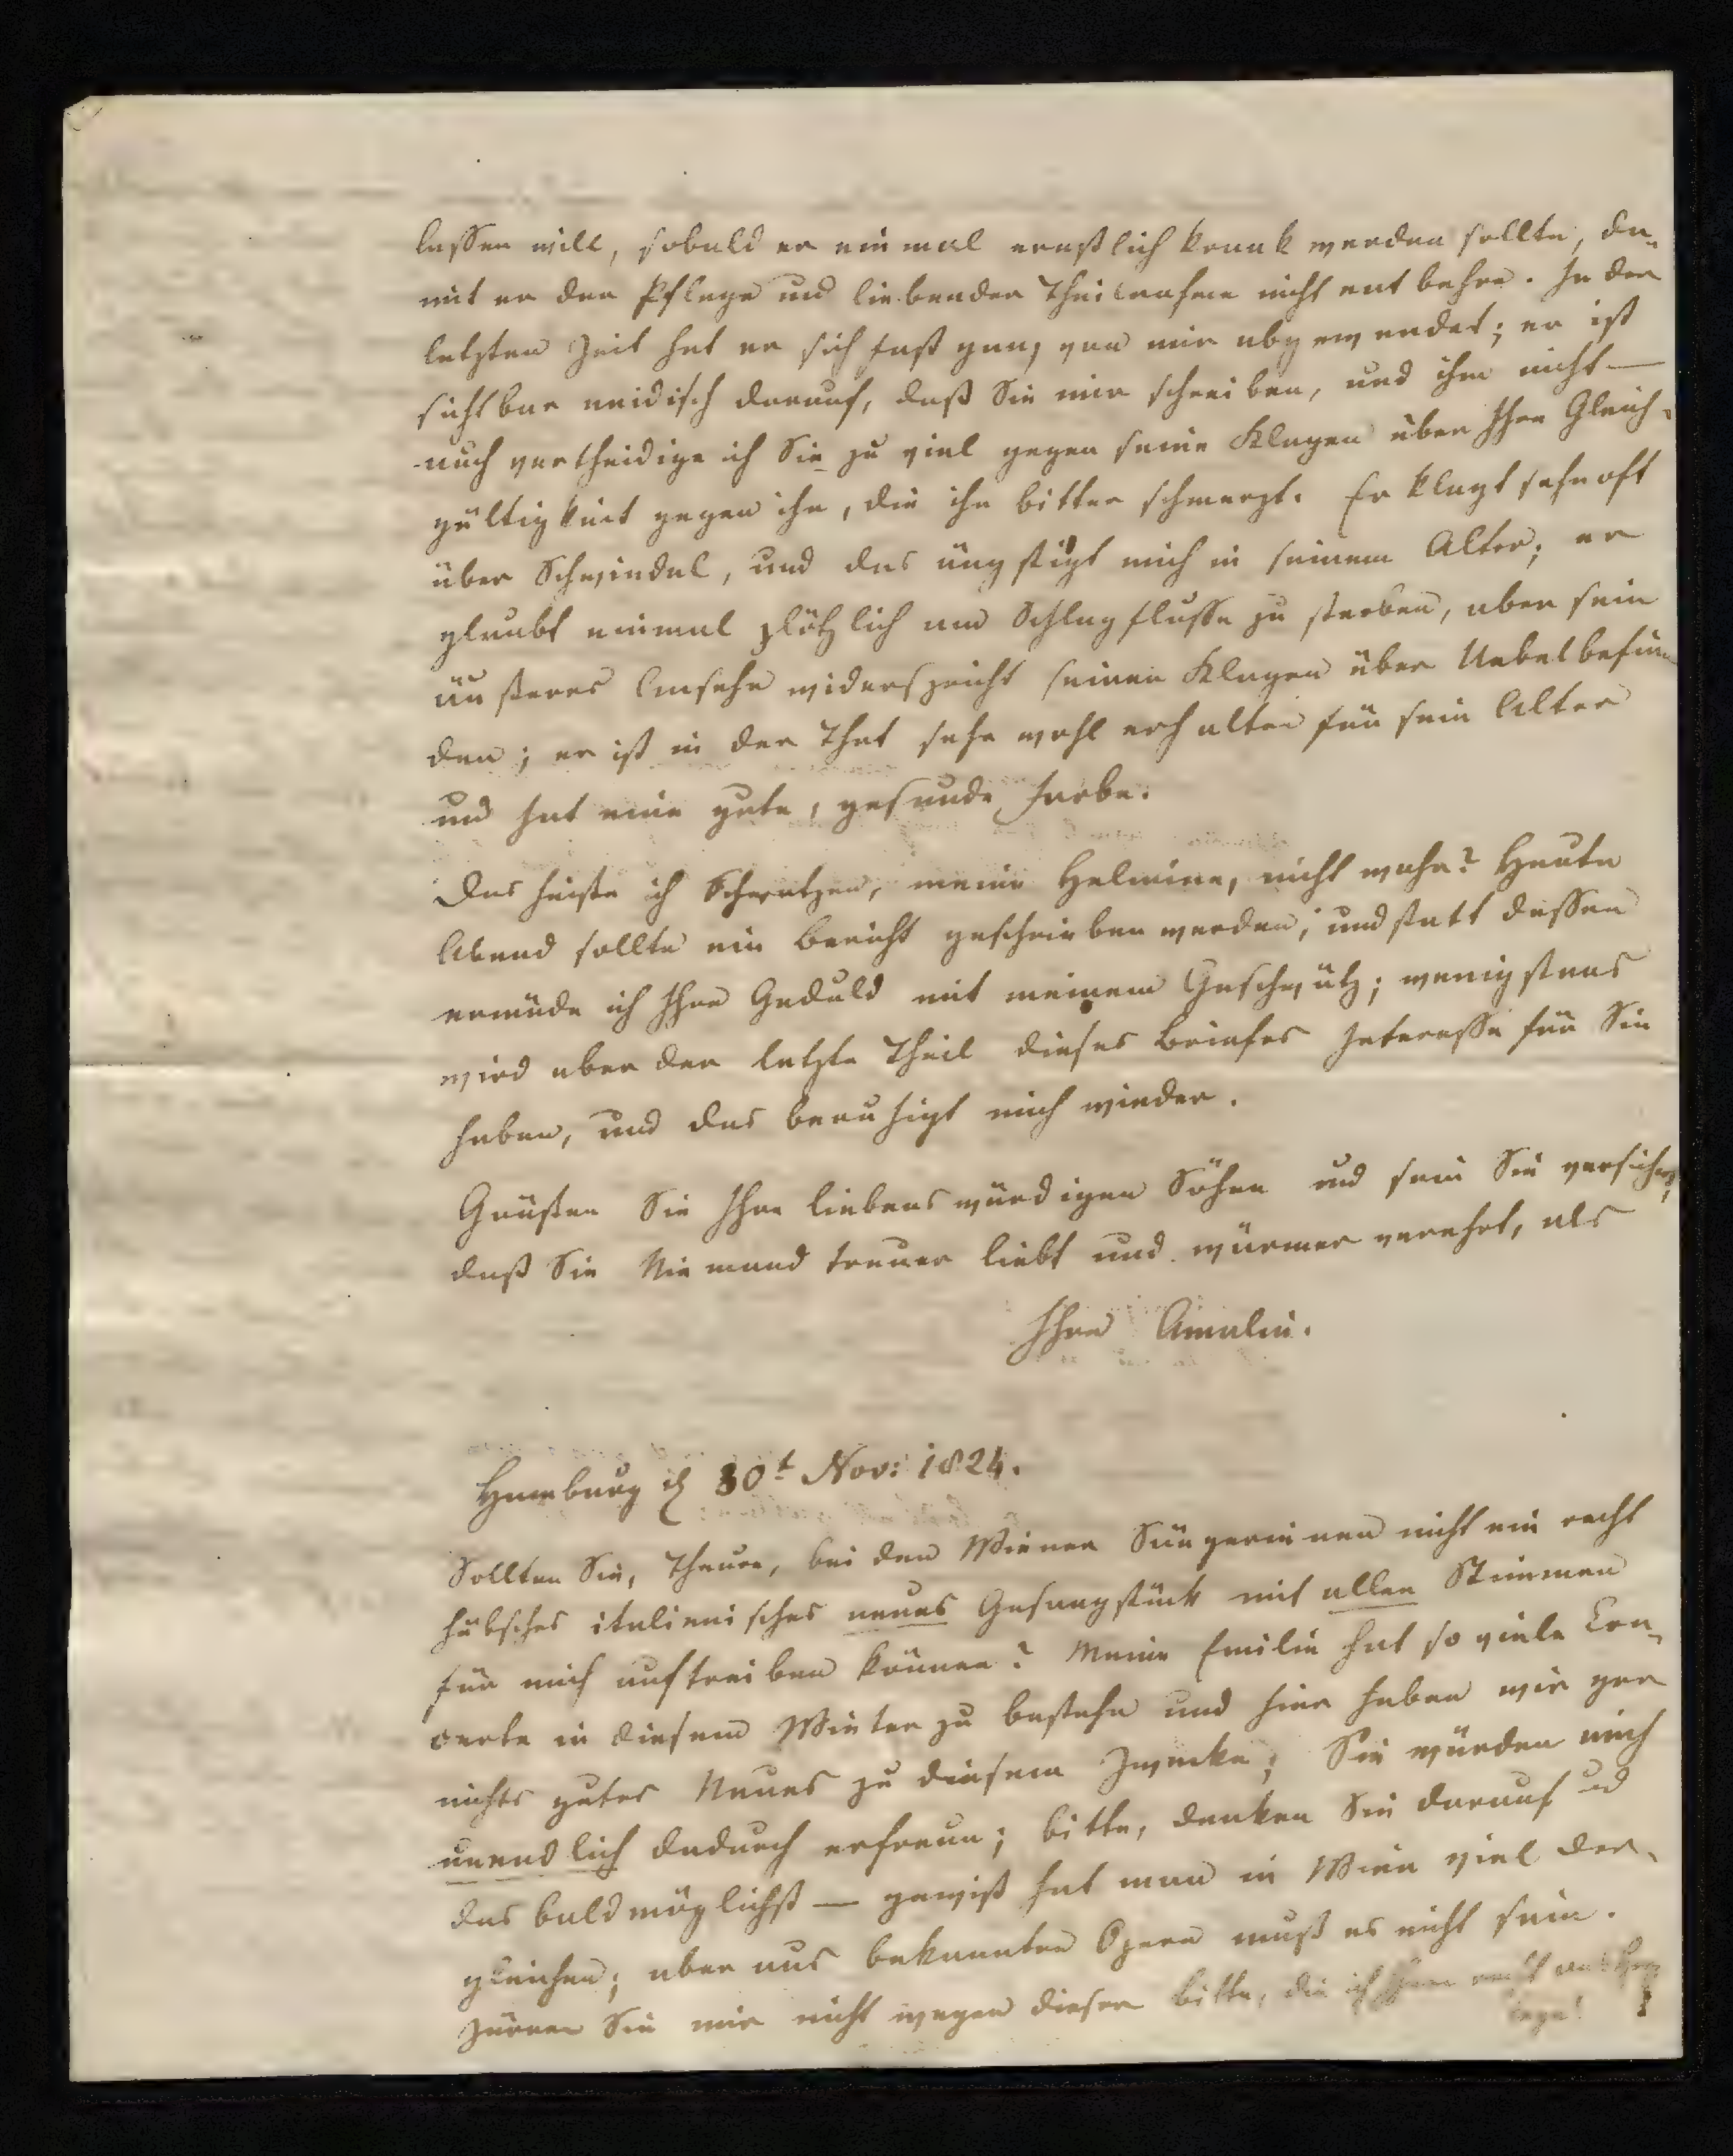 lassen will, sobald er einmal ernstlich krank werden sollte, da-
mit er der Pflege und liebender Theilnahme nicht entbehre. In der
letzten Zeit hat er sich fast ganz von mir abgewendet; er ist
sichtbar neidisch darauf, daß Sie mir schreiben, und ihm nicht —
auch vertheidige ich Sie zu viel gegen seine Klagen über Ihre Gleich-
gültigkeit gegen ihn, die ihn bitter schmerzt. Er klagt sehr oft
über Schwindel, und das ängstigt mich in seinem Alter; er
glaubt einmal plötzlich am Schlagflusse zu sterben, aber sein
äußeres Ansehn widerspricht seinen Klagen über Uebelbefin-
den; er ist in der That sehr wohl erhalten für sein Alter
und hat eine gute, gesunde Farbe.
Das heiße ich Schwatzen, meine Helmine, nicht wahr? Heute
Abend sollte ein Bericht geschrieben werden, und statt dessen
ermüde ich Ihre Geduld mit meinem Geschwätz; wenigstens
wird aber der letzte Theil dieses Briefes Interesse für Sie
haben, und das beruhigt mich wieder.
Grüßen Sie Ihre liebenswürdigen Söhne und sein Sie versichert,
daß Sie Niemand treuer liebt und wärmer verehrt, als
Ihre Amalie.
Hamburg d 30t Nov: 1824.
Sollten Sie, Theure, bei den Wiener Sängerinnen nicht ein recht
hübsches italienisches neues Gesangstück mit allen Stimmen
für mich auftreiben können? Meine Emilie hat so viele Con-
certe in diesem Winter zu bestehn und hier haben wir gar
nichts gutes Neues zu diesem Zwecke; Sie würden mich
unendlich dadurch erfreun; bitte, denken Sie darauf und
das baldmöglichst — gewiß hat man in Wien viel der-
gleichen; aber aus bekannten Opern muß es nicht sein.
Zürnen Sie mir nicht wegen dieser Bitte, die ich Ihnen recht ans Herz
lege!